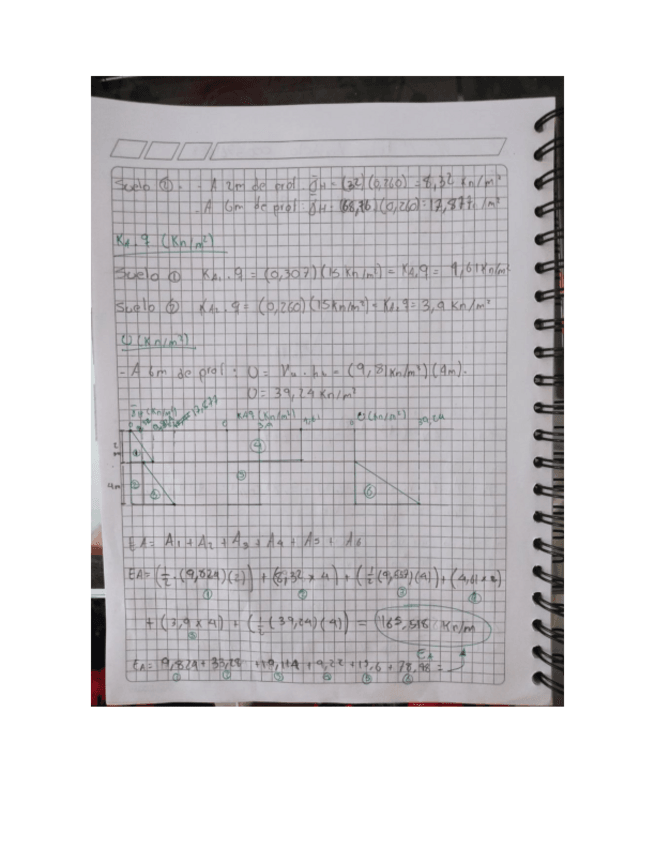 Suelo ②. - A 2m de prof. σ̄H = (32)(0,260) = 8,32 Kn/m²
- A 6m de prof: σ̄H = (68,76)(0,260) = 17,877 /m²
KA.q (Kn/m²)
Suelo ① KA1.q = (0,307)(15 Kn/m²) = KA.q = 4,61 Kn/m²
Suelo ② KA2.q = (0,260)(15Kn/m²) = KA.q = 3,9 Kn/m²
U (Kn/m²)
- A 6m de prof: U = γw . hw = (9,81Kn/m³)(4m).
U = 39,24 Kn/m²
σ̄H (Kn/m²) KAq (Kn/m²) U (Kn/m²)
0 17,877 0 3,9 4,61 0 39,24
④
4m ② ⑤ ⑥
EA = A1 + A2 + A3 + A4 + A5 + A6
EA = (1/2 . (9,824)(2)) + (8,32 x 4) + (1/2 (9,557)(4)) + (4,61 x 2)
① ② ③ ④
+ (3,9 x 4) + (1/2 (39,24)(4)) = 165,518 Kn/m
⑤ EA
EA = 9,824 + 33,28 + 19,114 + 9,22 + 15,6 + 78,48 =
① ② ③ ④ ⑤ ⑥